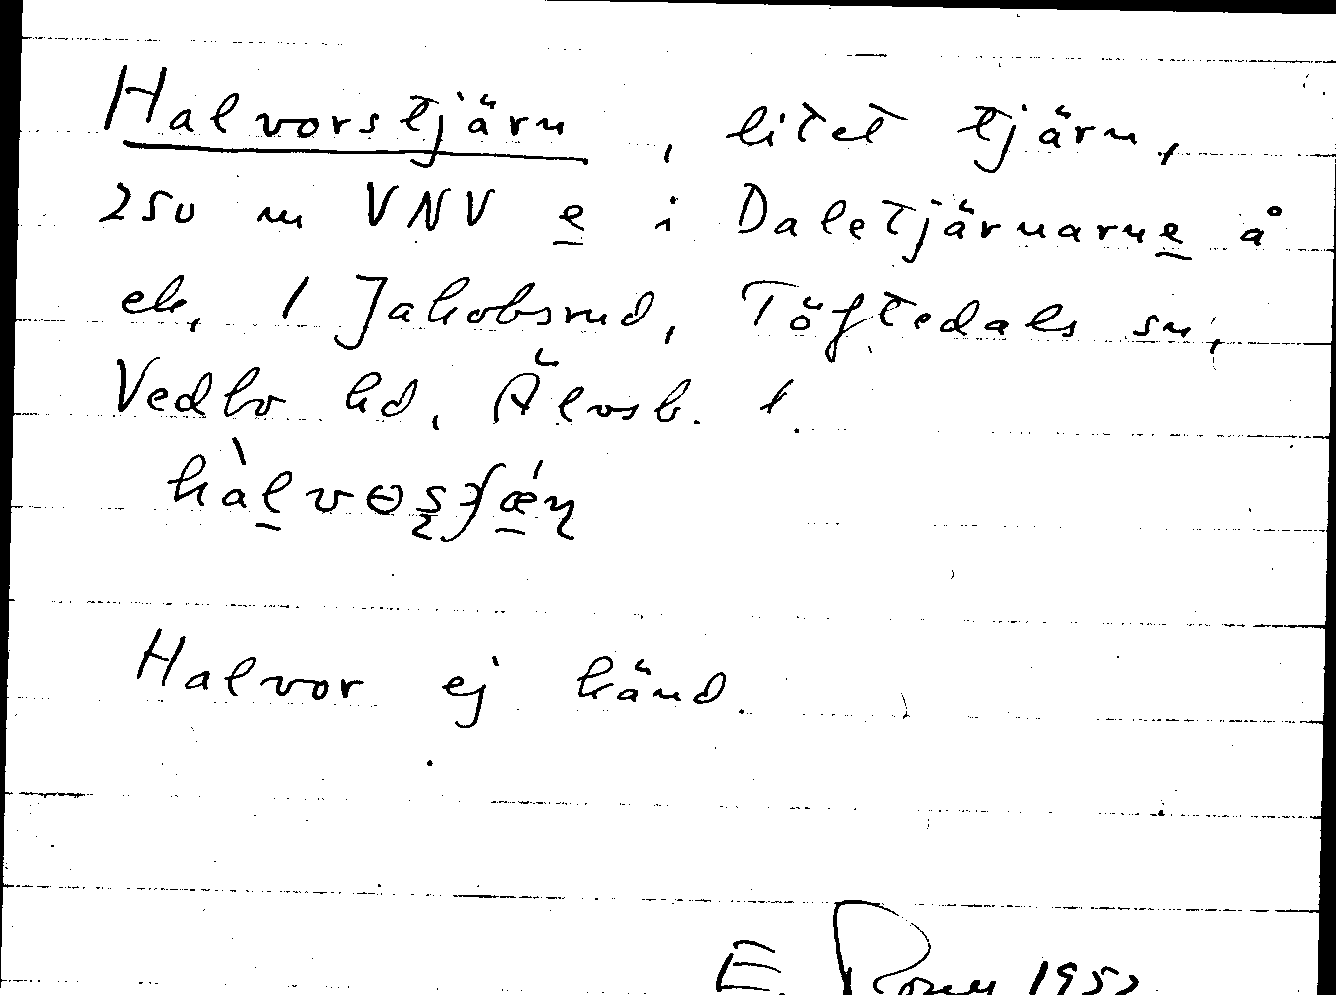 Halvorstjärn, litet tjärn,
250 m VNV e i Daletjärnarne å
ek. 1 Jakobsrud, Töftedals sn,
Vedbo hd, Älvsb. l.
Halvor ej känd.
E. 1952